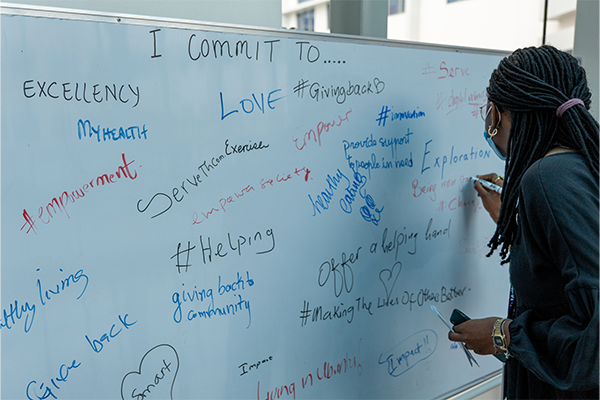 I COMMIT TO.....
EXCELLENCY
MyHEALTH
LOVE
#GivingbackB
#Serve
#innovation
empower
Serve Them Exercise
provide support
to people in need
Exploration
#empowerment
empower society
healthy
eating
#Helping
offer a helping hand
Healthy living
giving back to
community
#Making The Lives Of Others Better
Give back
Smart
Impact
living in Ubuntu
Impact!